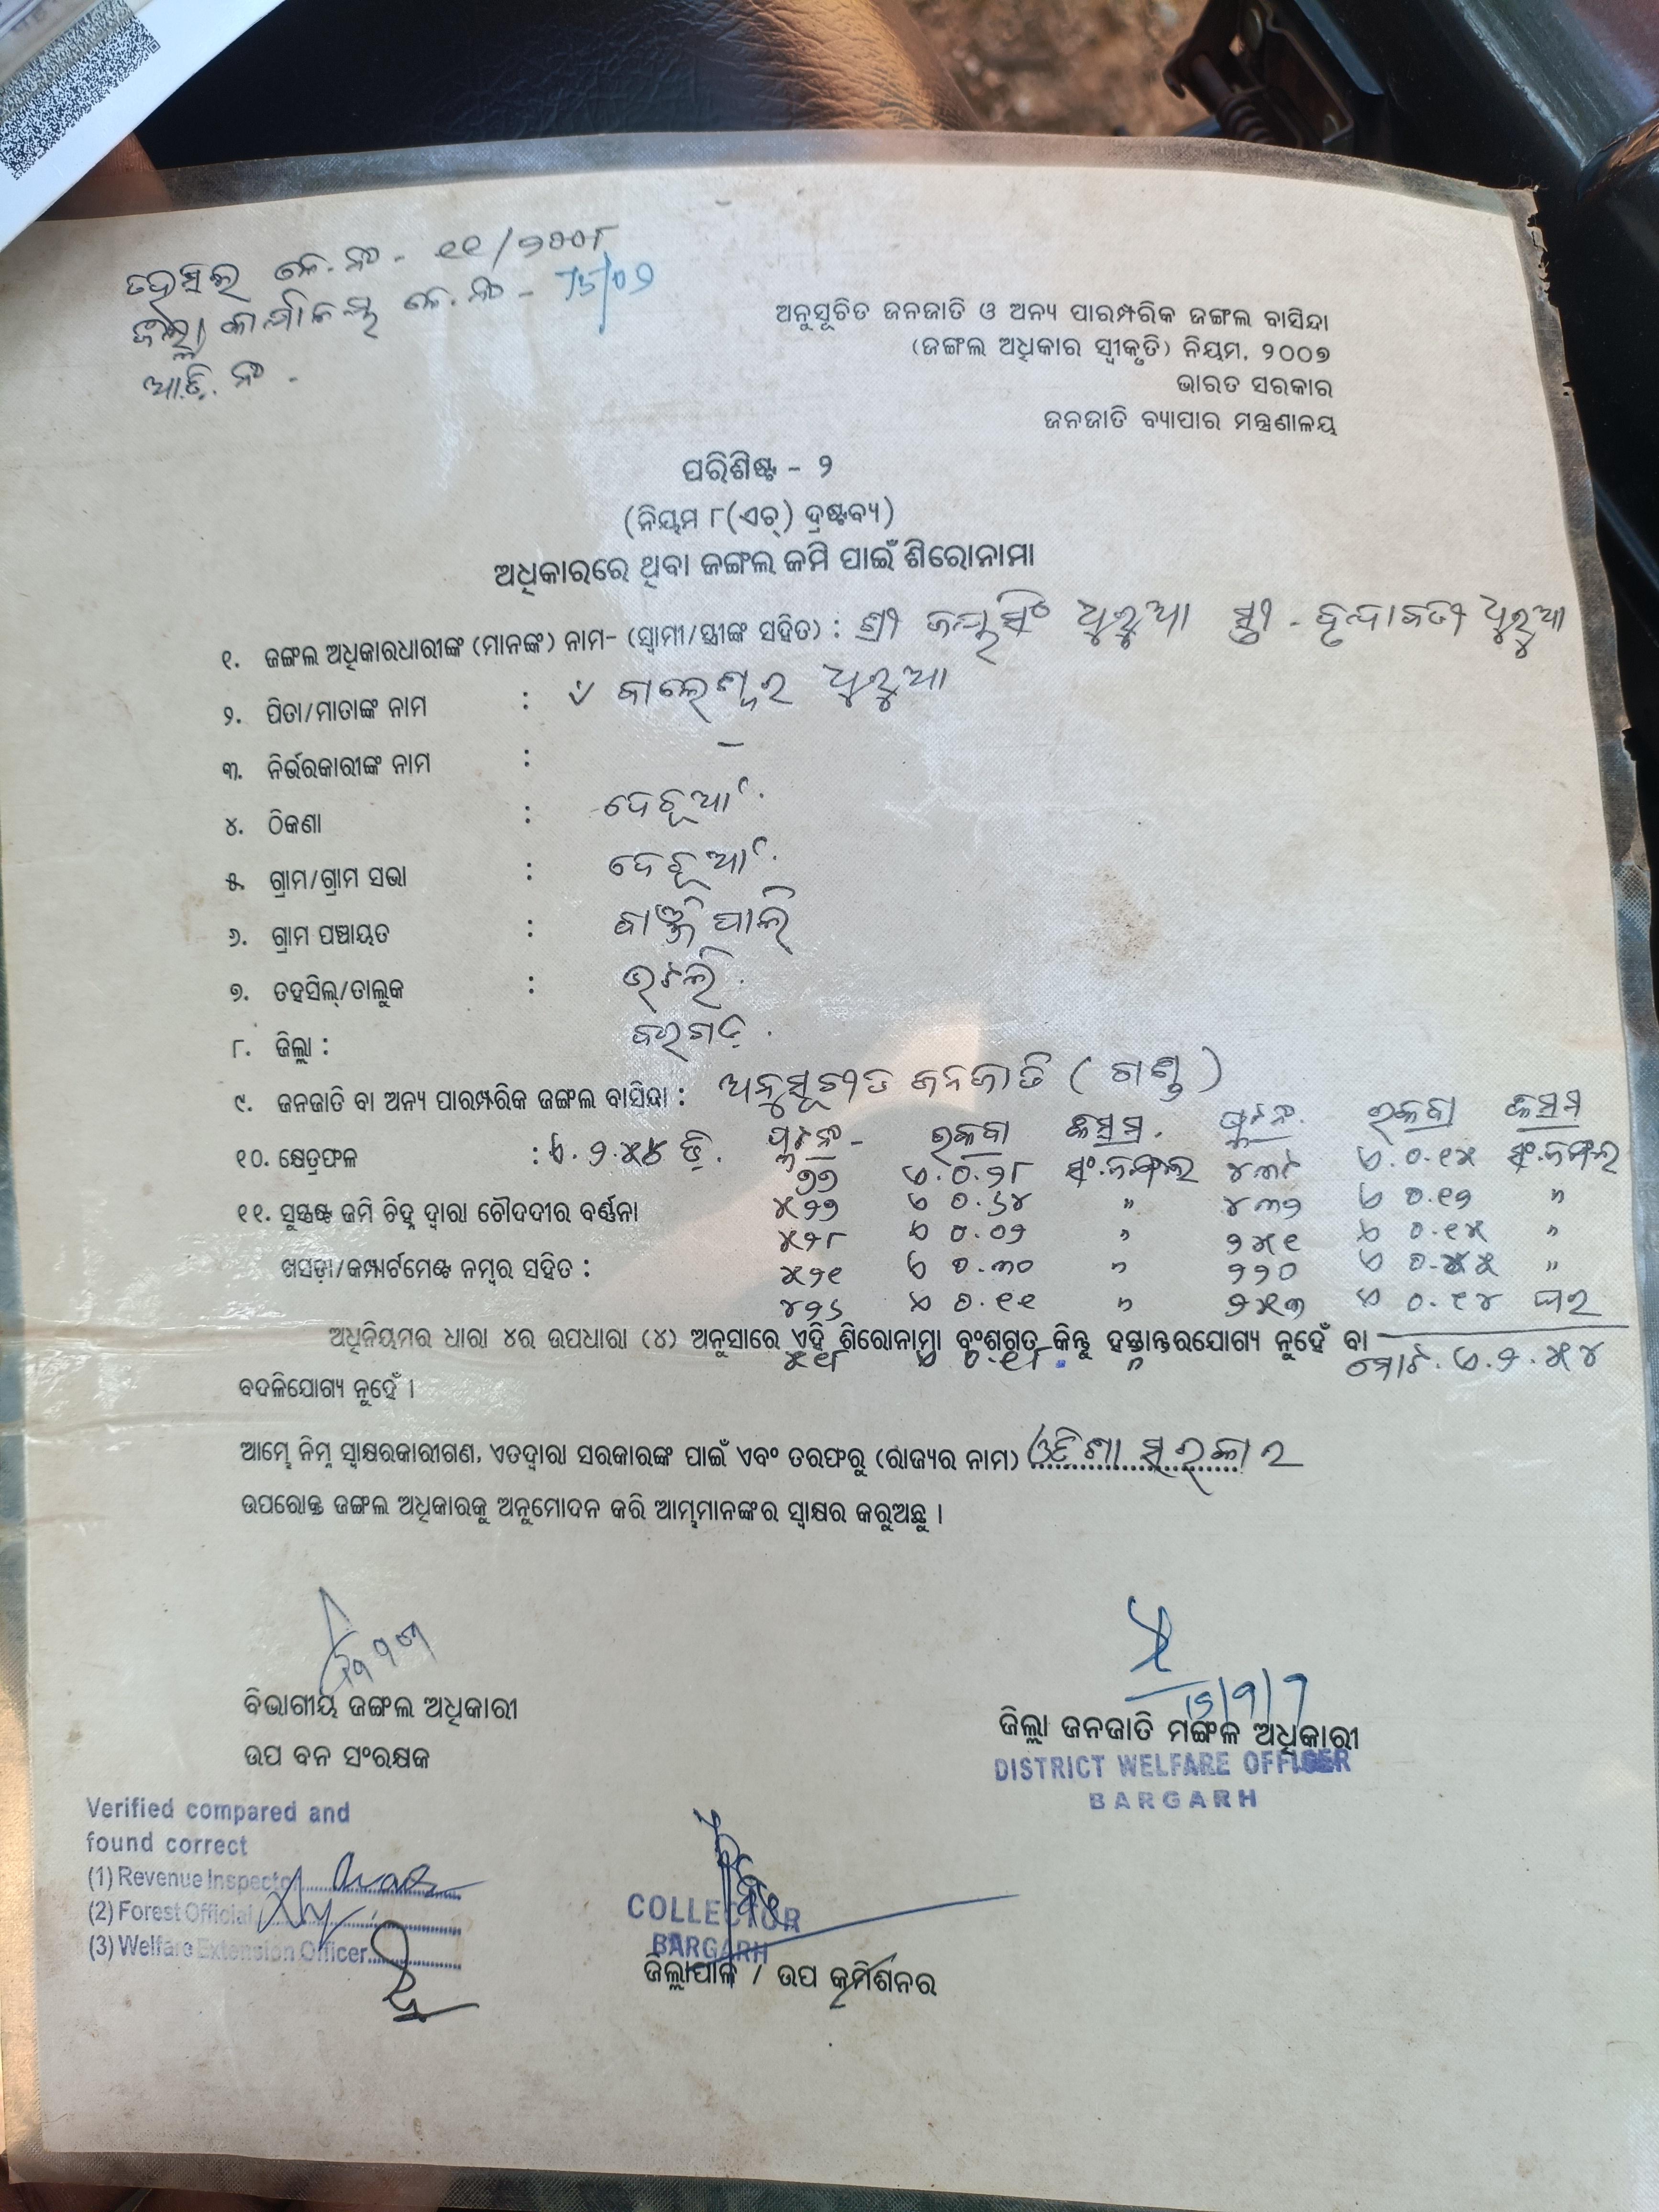 ତହସିଲ କେ.ନଂ - ୧୧/୨୦୦୮
ଜିଲ୍ଲା କାର୍ଯ୍ୟାଳୟ କେ.ନଂ - 75/୦୨
ଆ.ଡି. ନଂ -
ଅନୁସୂଚିତ ଜନଜାତି ଓ ଅନ୍ୟ ପାରମ୍ପରିକ ଜଙ୍ଗଲ ବାସିନ୍ଦା
(ଜଙ୍ଗଲ ଅଧିକାର ସ୍ୱୀକୃତି) ନିୟମ, ୨୦୦୭
ଭାରତ ସରକାର
ଜନଜାତି ବ୍ୟାପାର ମନ୍ତ୍ରଣାଳୟ
ପରିଶିଷ୍ଟ - ୨
(ନିୟମ ୮(ଏଚ୍) ଦ୍ରଷ୍ଟବ୍ୟ)
ଅଧିକାରରେ ଥିବା ଜଙ୍ଗଲ ଜମି ପାଇଁ ଶିରୋନାମା
୧. ଜଙ୍ଗଲ ଅଧିକାରଧାରୀଙ୍କ (ମାନଙ୍କ) ନାମ- (ସ୍ୱାମୀ/ସ୍ତ୍ରୀଙ୍କ ସହିତ) : ଶ୍ରୀ ଜୟସିଂ ଧୁରୁଆ ସ୍ତ୍ରୀ - ବୃନ୍ଦାବତୀ ଧୁରୁଆ
୨. ପିତା/ମାତାଙ୍କ ନାମ : ଁ ବାଲେଶ୍ୱର ଧୁରୁଆ
୩. ନିର୍ଭରକାରୀଙ୍କ ନାମ : –
୪. ଠିକଣା : ଦେହୂଆଁ.
୫. ଗ୍ରାମ/ଗ୍ରାମ ସଭା : ଦେହୂଆଁ.
୬. ଗ୍ରାମ ପଞ୍ଚାୟତ : ବାଞ୍ଜିପାଲି
୭. ତହସିଲ୍/ତାଲୁକ : ଭଟଲି.
୮. ଜିଲ୍ଲା : ବରଗଡ଼.
୯. ଜନଜାତି ବା ଅନ୍ୟ ପାରମ୍ପରିକ ଜଙ୍ଗଲ ବାସିନ୍ଦା : ଅନୁସୂଚୀତ ଜନଜାତି ( ଗଣ୍ଡ )
୧୦. କ୍ଷେତ୍ରଫଳ : ଏ.୨.୫୪ ଡି. ପ୍ଲଟ ନଂ - ରକବା କିସମ. ପ୍ଲଟ ନଂ. ରକବା କିସମ
୭୭ ଏ.୦.୨୮ ସଂ.ଜଙ୍ଗଲ ୪୩୮ ଏ.୦.୧୫ ସଂ.ଜଙ୍ଗଲ
୧୧. ସୁସ୍ପଷ୍ଟ ଜମି ଚିହ୍ନ ଦ୍ୱାରା ଚୌହଦୀର ବର୍ଣ୍ଣନା ୫୨୭ ଏ ୦.୬୪ " ୪୩୨ ଏ ୦.୧୨ "
୫୨୮ ଏ ୦.୦୨ " ୨୫୧ ଏ ୦.୧୫ "
ଖସଡ଼ା/କମ୍ପାର୍ଟମେଣ୍ଟ ନମ୍ବର ସହିତ : ୫୨୧ ଏ ୦.୩୦ " ୨୨୦ ଏ ୦.୫୫ "
୪୨୬ ଏ ୦.୧୧ " ୨୫୩ ଏ ୦.୧୪ ଘର
ଅଧିନିୟମର ଧାରା ୪ର ଉପଧାରା (୪) ଅନୁସାରେ ଏହି ଶିରୋନାମା ବଂଶଗତ କିନ୍ତୁ ହସ୍ତାନ୍ତରଯୋଗ୍ୟ ନୁହେଁ ବା
୫୧୮ ଏ ୦.୧୮. " ମୋଟ. ଏ.୨.୫୪
ବଦଳିଯୋଗ୍ୟ ନୁହେଁ ।
ଆମ୍ଭେ ନିମ୍ନ ସ୍ୱାକ୍ଷରକାରୀଗଣ, ଏତଦ୍ୱାରା ସରକାରଙ୍କ ପାଇଁ ଏବଂ ତରଫରୁ (ରାଜ୍ୟର ନାମ) ଓଡିଶା ସରକାର
ଉପରୋକ୍ତ ଜଙ୍ଗଲ ଅଧିକାରକୁ ଅନୁମୋଦନ କରି ଆମ୍ଭମାନଙ୍କର ସ୍ୱାକ୍ଷର କରୁଅଛୁ ।
ବିଭାଗୀୟ ଜଙ୍ଗଲ ଅଧିକାରୀ
ଉପ ବନ ସଂରକ୍ଷକ
ଜିଲ୍ଲା ଜନଜାତି ମଙ୍ଗଳ ଅଧିକାରୀ
DISTRICT WELFARE OFFICER
BARGARH
Verified compared and
found correct
(1) Revenue Inspector
(2) Forest Official
(3) Welfare Extension Officer
COLLECTOR
BARGARH
ଜିଲ୍ଲାପାଳ / ଉପ କମିଶନର